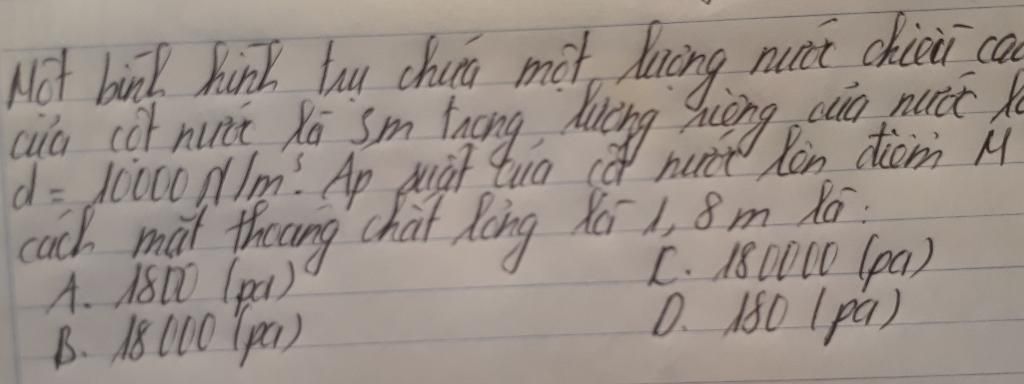 Một bình hình trụ chứa một lượng nước chiều cao
của cột nước là 5m trọng lượng riêng của nước là
d = 10000 N/m³. Áp suất của cột nước lên điểm M
cách mặt thoáng chất lỏng là 1,8m là:
A. 1800 (pa) C. 180000 (pa)
B. 18000 (pa) D. 180 (pa)